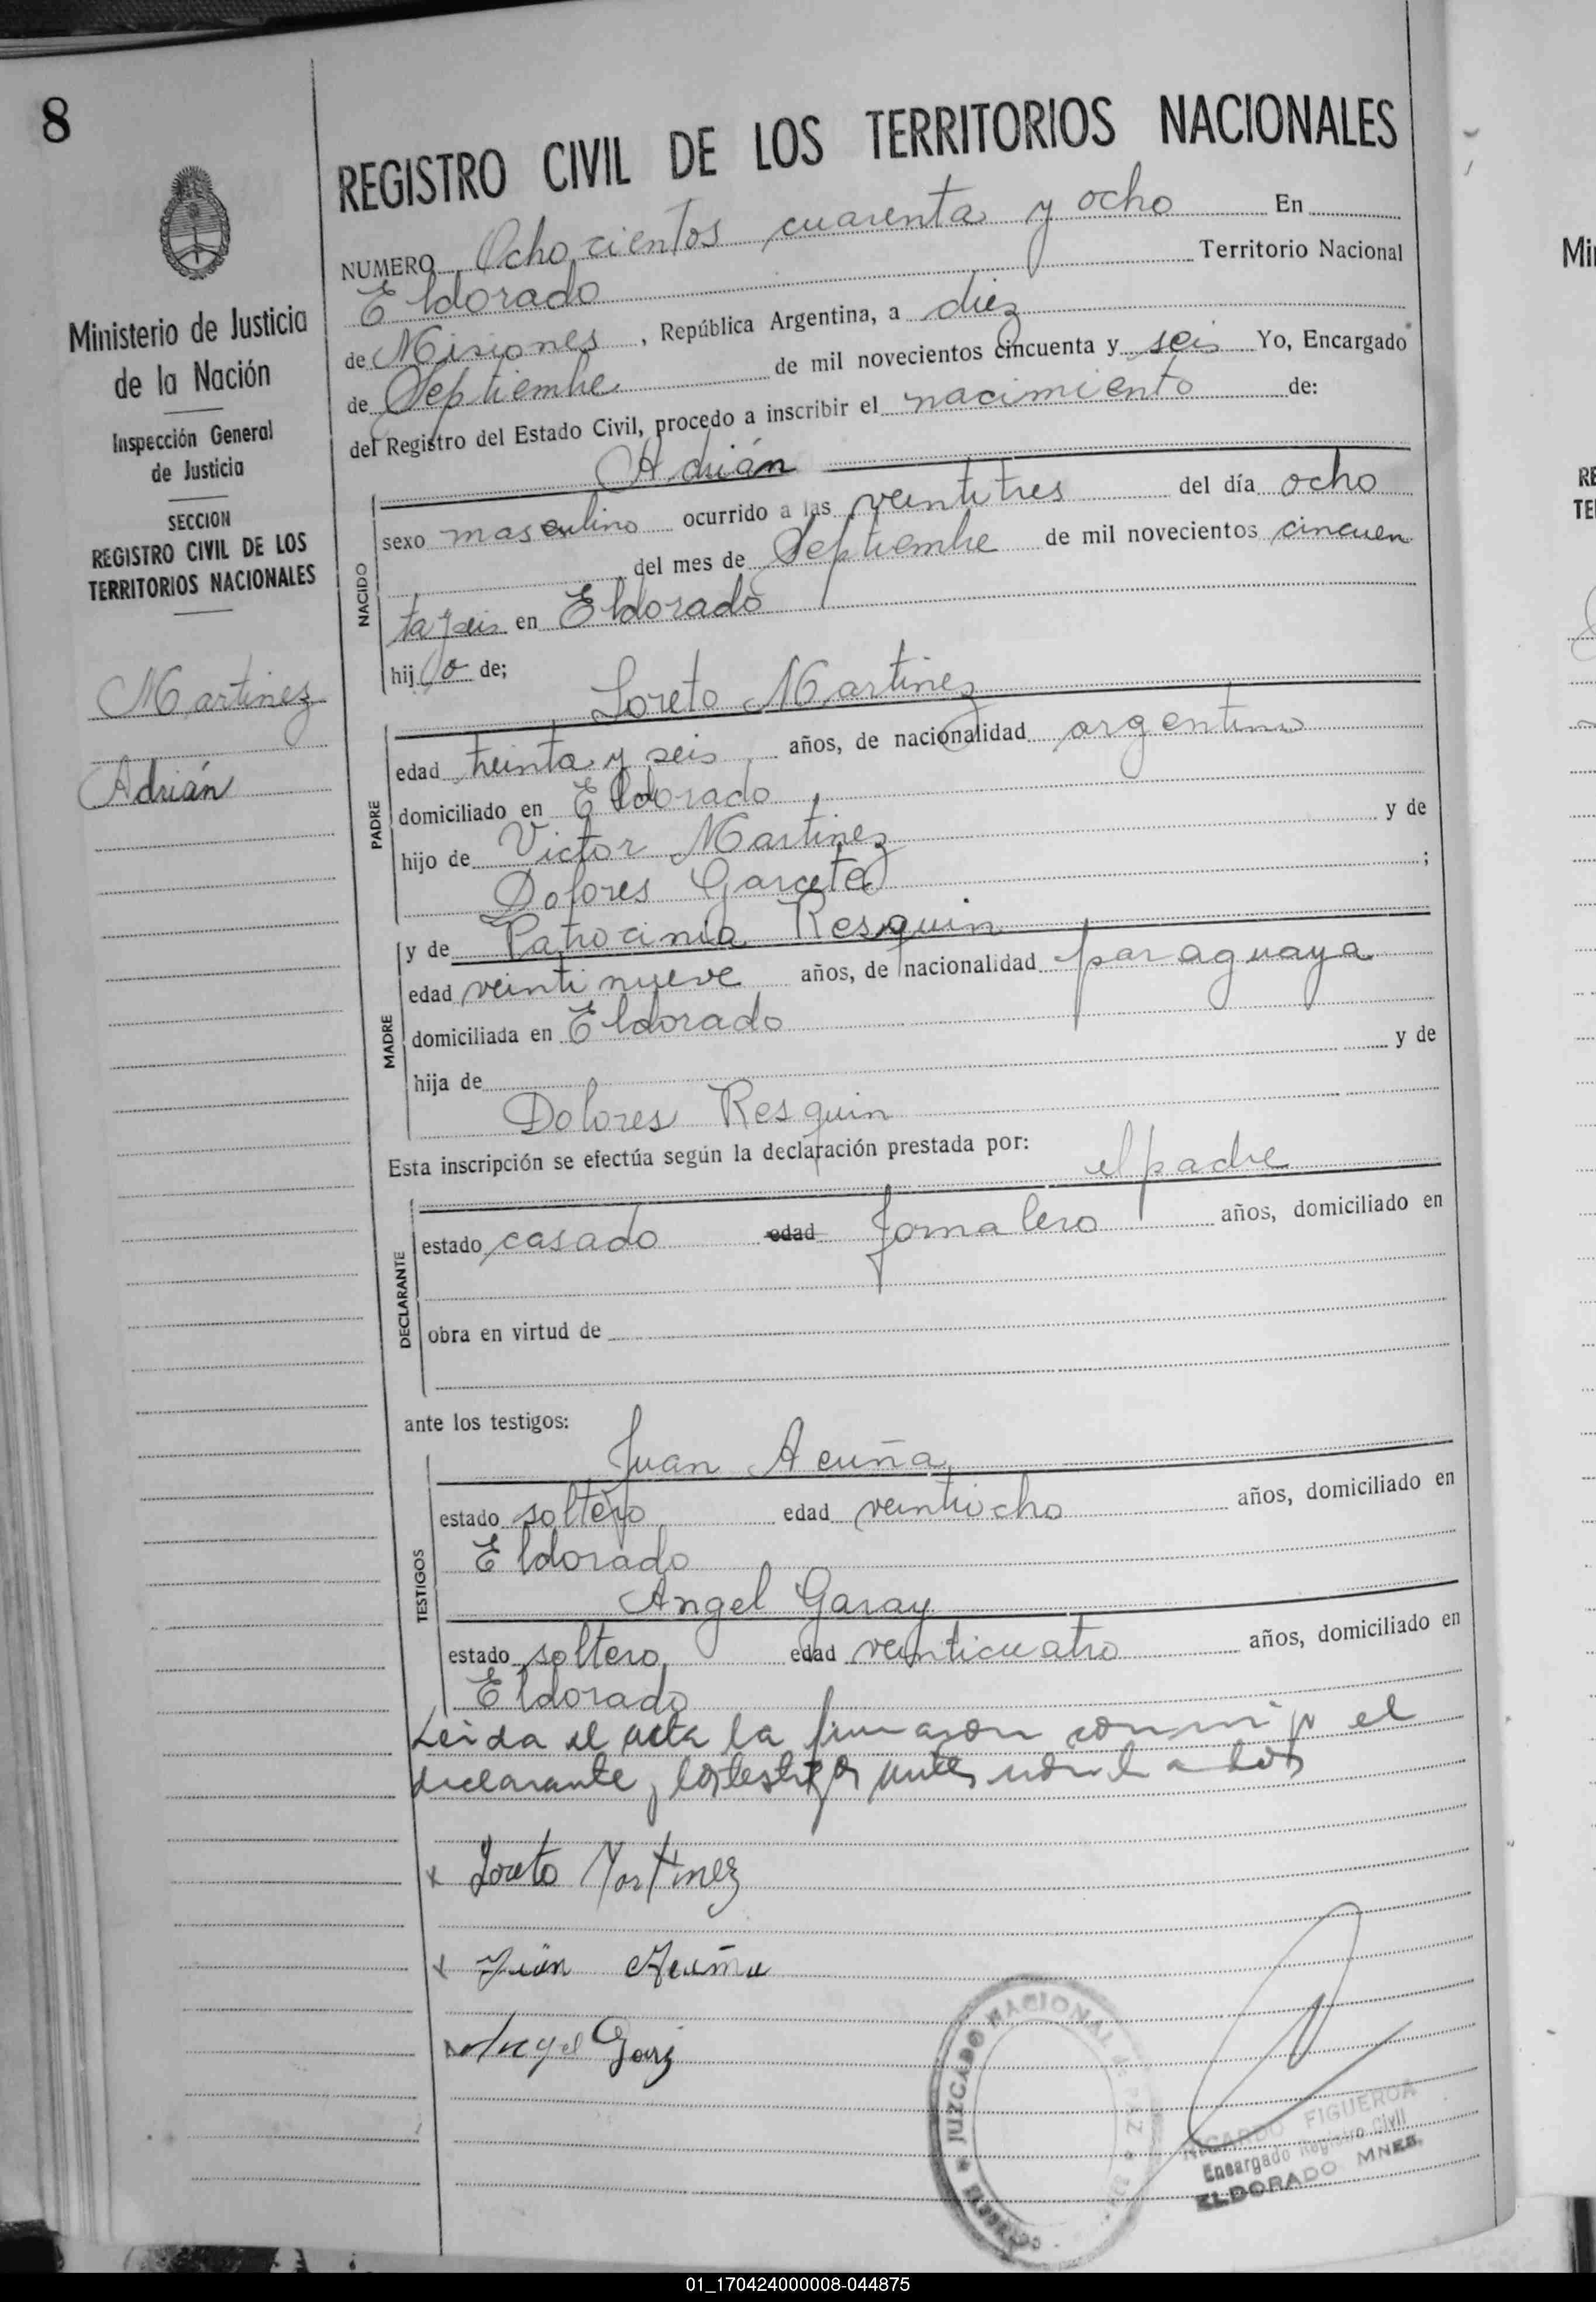 8
Ministerio de Justicia
de la Nación
Inspección General
de Justicia
SECCION
REGISTRO CIVIL DE LOS
TERRITORIOS NACIONALES
Martinez
Adrián
REGISTRO CIVIL DE LOS TERRITORIOS NACIONALES
NUMERO Ochocientos cuarenta y ocho En
Eldorado Territorio Nacional
de Misiones, República Argentina, a diez
de Septiembre de mil novecientos cincuenta y seis Yo, Encargado
del Registro del Estado Civil, procedo a inscribir el nacimiento de:
Adrián
NACIDO
sexo masculino ocurrido a las veintitres del día ocho
del mes de Septiembre de mil novecientos cincuen
ta y seis en Eldorado
hijo de;
Loreto Martinez
PADRE
edad treinta y seis años, de nacionalidad argentino
domiciliado en Eldorado
hijo de Victor Martinez y de
Dolores Garceta;
MADRE
y de Patrocinia Resquin
edad veintinueve años, de nacionalidad paraguaya
domiciliada en Eldorado
hija de y de
Dolores Resquin
Esta inscripción se efectúa según la declaración prestada por: el padre
DECLARANTE
estado casado edad Jornalero años, domiciliado en
obra en virtud de
ante los testigos:
Juan Acuña
TESTIGOS
estado soltero edad veintiocho años, domiciliado en
Eldorado
Angel Garay
estado soltero edad veinticuatro años, domiciliado en
Eldorado
Leida el acta la firmaron conmigo el
declarante y los testigos antes nombrados
x Loreto Martinez
x Juan Acuña
Angel Garay
JUZGADO NACIONAL DE PAZ
RICARDO FIGUEROA
Encargado Registro Civil
ELDORADO MNES.
Mi
RE
TE
01_170424000008-044875